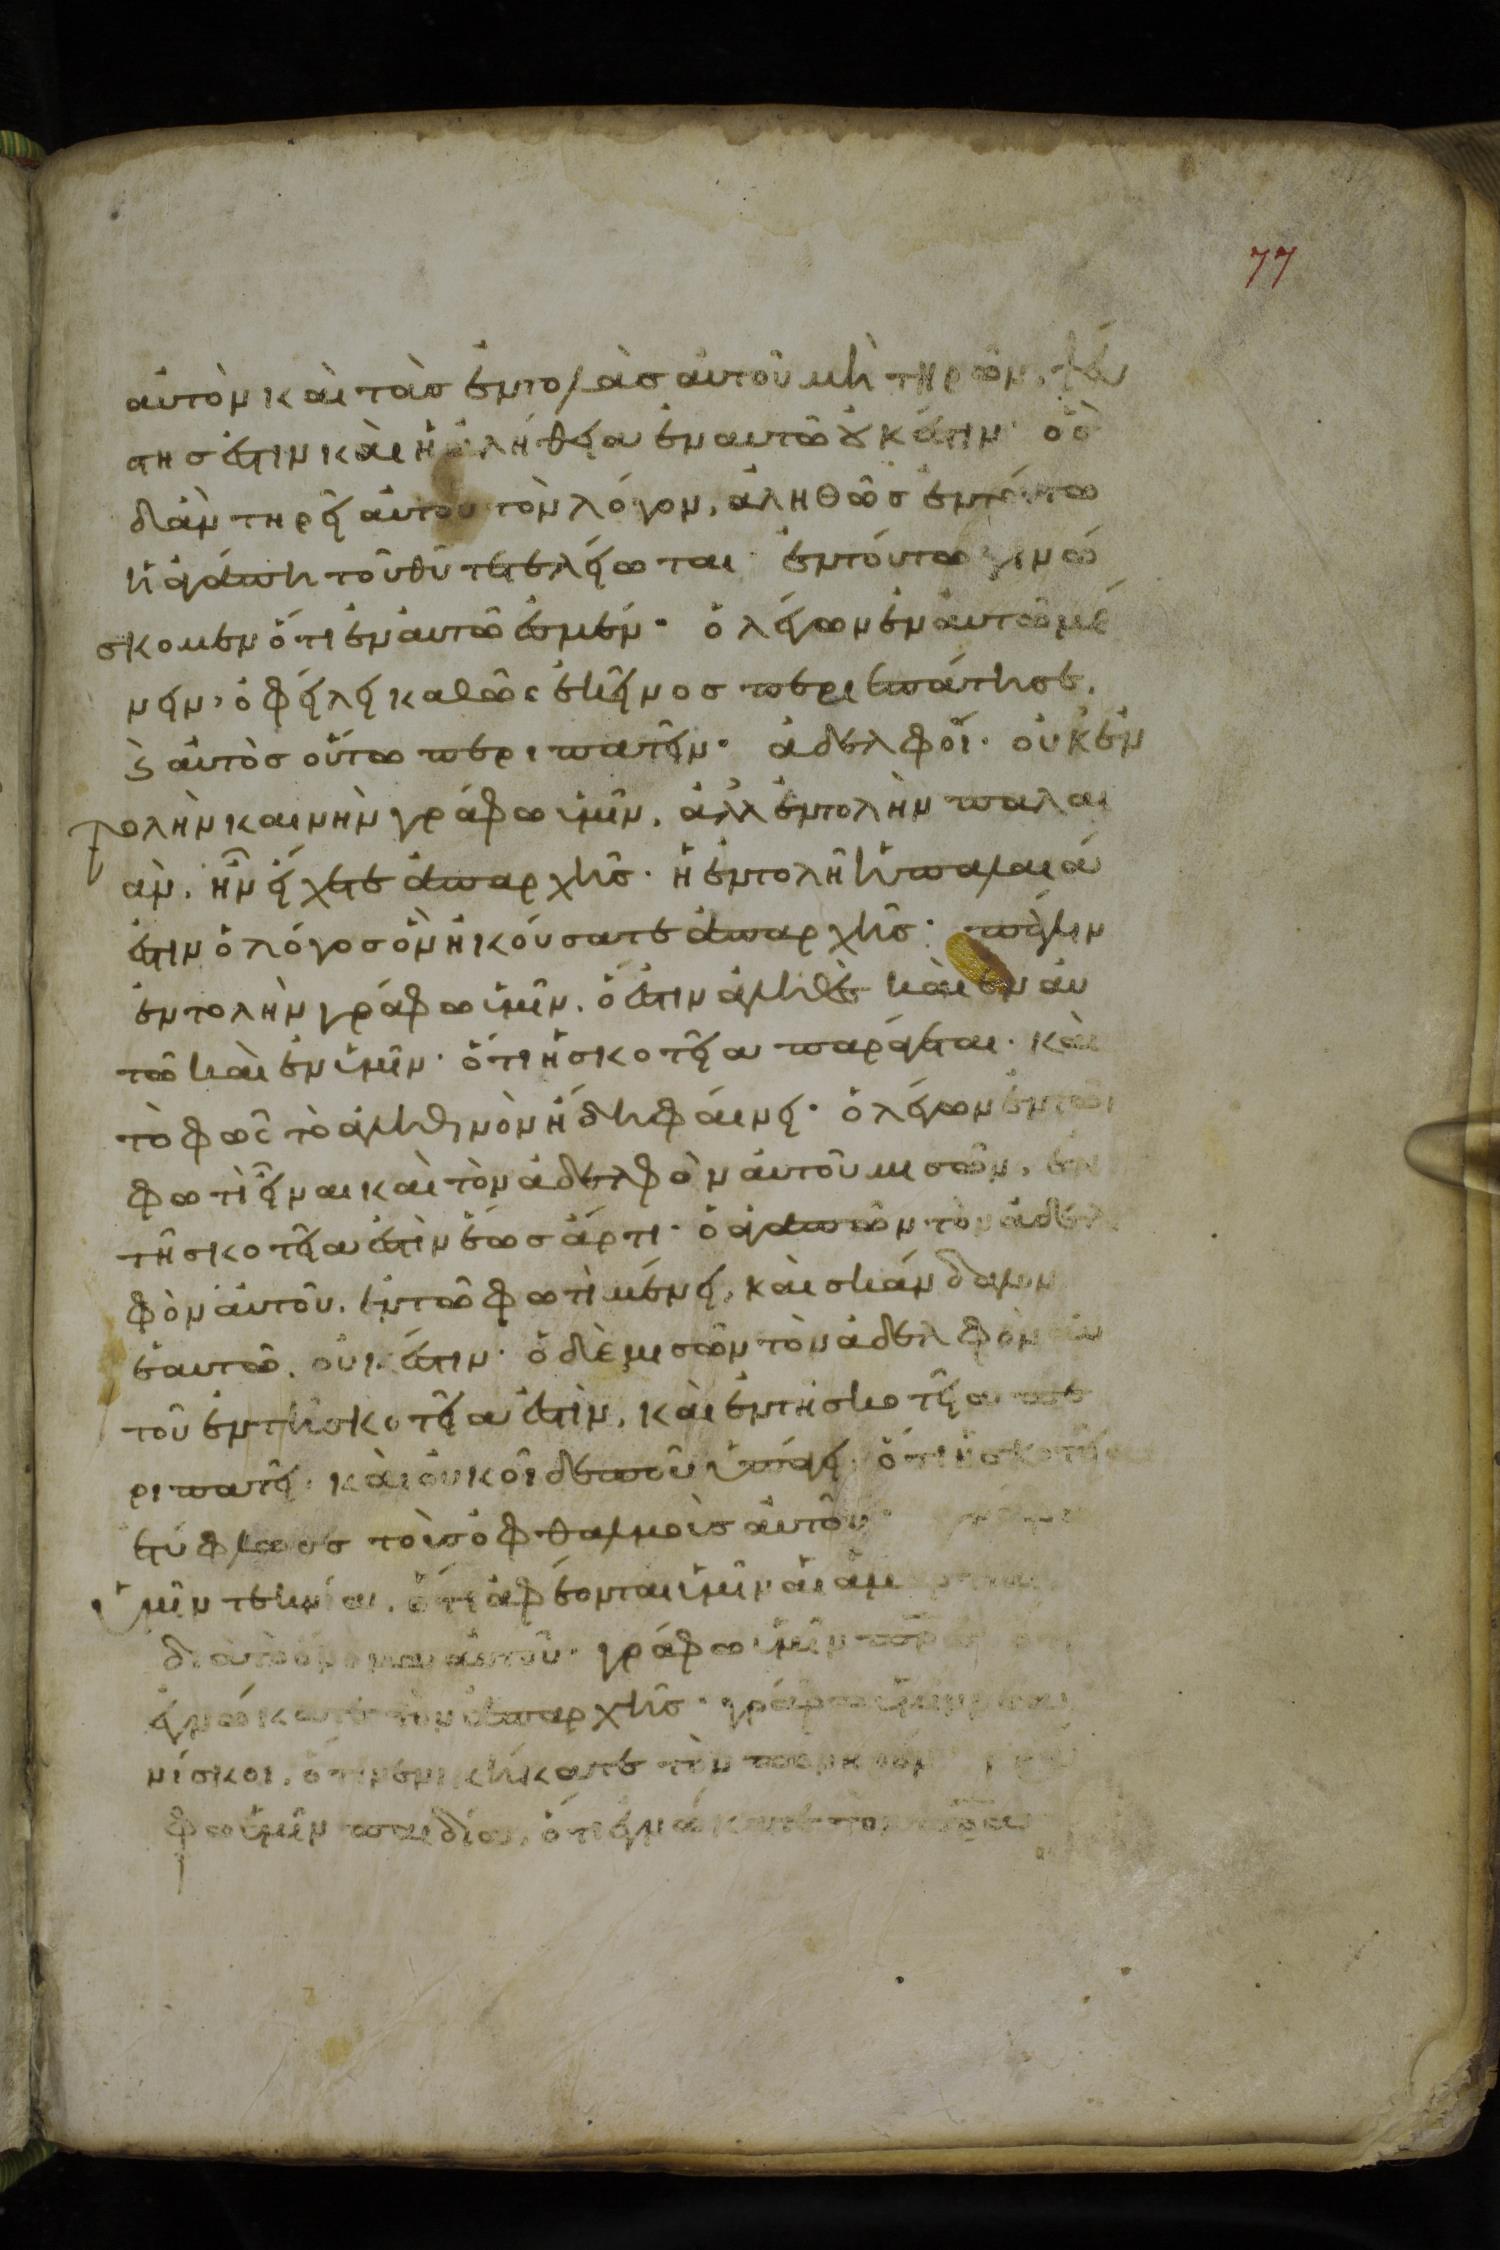 77
αὐτὸν καὶ τὰσ ἐντολὰσ αὐτοῦ μὴ τηρῶν, ψεύ
στησ ἐστιν καὶ ἡ ἀλήθεια ἐν αυτῶ ȣκ ἔστιν· ὃσ
δἂν τηρεῖ αὐτοῦ τὸν λόγον, ἀληθῶσ ἐν τούτω
ἡ ἀγάπη τοῦ θῦ τετελείωται· ἐν τούτω γινώ
σκομεν ὅτι ἐν αυτῶ ἐσμέν· ὁ λέγων ἐν ἀυτῶ μέ
νειν, ὀφείλει καθὼς ἐκεῖνοσ περιεπάτησε,
ϗ αὐτὸσ οὕτω περιπατεῖν· ἀδελφοί· οὐκ ἐν
τολὴν καινὴν γράφω ὑμῖν, ἀλλ' ἐντολὴν παλαι
ὰν, ἣν εἴχετε ἀπαρχῆσ· ἡ ἐντολὴ ἡ παλαιά
ἐστιν ὁ λόγοσ ὃν ἠκούσατε ἀπαρχῆσ· πάλιν
ἐντολὴν γράφω ὑμῖν, ὅ ἐστιν ἀληθὲσ καὶ ἐν αυ
τῶ καὶ ἐν ὑμῖν· ὅτι ἡ σκοτεῖα παράγεται· καὶ
τὸ φῶς τὸ ἀληθινὸν ἤδη φαίνει· ὁ λέγων ἐν τῶ
φωτὶ εἶναι καὶ τὸν ἀδελφὸν ἀυτοῦ μισῶν, ἐν
τῆ σκοτεῖα ἐστὶν ἕωσ ἄρτι· ὁ ἀγαπῶν τὸν ἀδελ
φὸν ἀυτοῦ, ἐν τῶ φωτὶ μένει, καὶ σκάνδαλον
ἐν αυτῶ, οὐκ ἔστιν· ὁ δὲ μισῶν τὸν ἀδελφὸν αὐ
τοῦ ἐν τῆ σκοτεῖα ἐστὶν, καὶ ἐν τῆ σκοτεῖα πε
ριπατεῖ· καὶ ουκ οἶδε ποῦ ὑπάγει, ὅτι ἡ σκοτεία
ἐτύφλωσε τοὺσ ὀφθαλμοὺσ αὐτοῦ·
ὑμῖν τεκνία, ὅτι ἀφέονται ὑμῖν αἱ ἁμαρτίαι
διὰ τὸ ὄνομα αὐτοῦ· γράφω ὑμῖν πρ̅εσ ὅτι
ἐγνώκατε τὸν ἀπαρχῆσ· γράφω ὑμῖν νεα
νίσκοι, ὅτι νενικήκατε τὸν πονηρόν· γρά
φω ὑμῖν παιδία, ὅτι ἐγνώκατε τὸν πρ̅α